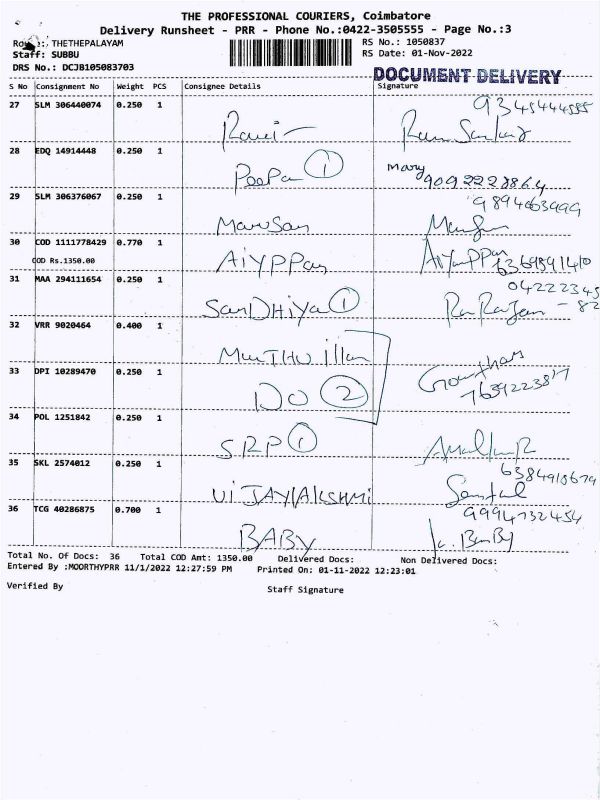 THE PROFESSIONAL COURIERS, Coimbatore
Delivery Runsheet - PRR - Phone No.:0422-3505555 - Page No.:3
THETHEPALAYAM
RS No.: 1050837
Staff: SUBBU
RS Date: 01-Nov-2022
DRS No.: DCJB105083703
DOCUMENT DELIVERY
S No Consignment No Weight PCS Consignee Details Signature
27 SLM 306440074 0.250 1
28 EDQ 14914448 0.250 1
PeePal 1
Mary
9092228864
29 SLM 306376067 0.250 1
9894063999
30 COD 1111778429 0.770 1
COD Rs.1350.00
AiYPPan
31 MAA 294111654 0.250 1
SanDHiya 1
04222345
- 82
32 VRR 9020464 0.400 1
33 DPI 10289470 0.250 1
DO 2
34 POL 1251842 0.250 1
SRP 1
35 SKL 2574012 0.250 1
ViJAYlAKSHMi
36 TCG 40286875 0.700 1
9994732454
BABY
Total No. Of Docs: 36 Total COD Amt: 1350.00 Delivered Docs: Non Delivered Docs:
Entered By :MOORTHYPRR 11/1/2022 12:27:59 PM Printed On: 01-11-2022 12:23:01
Verified By
Staff Signature